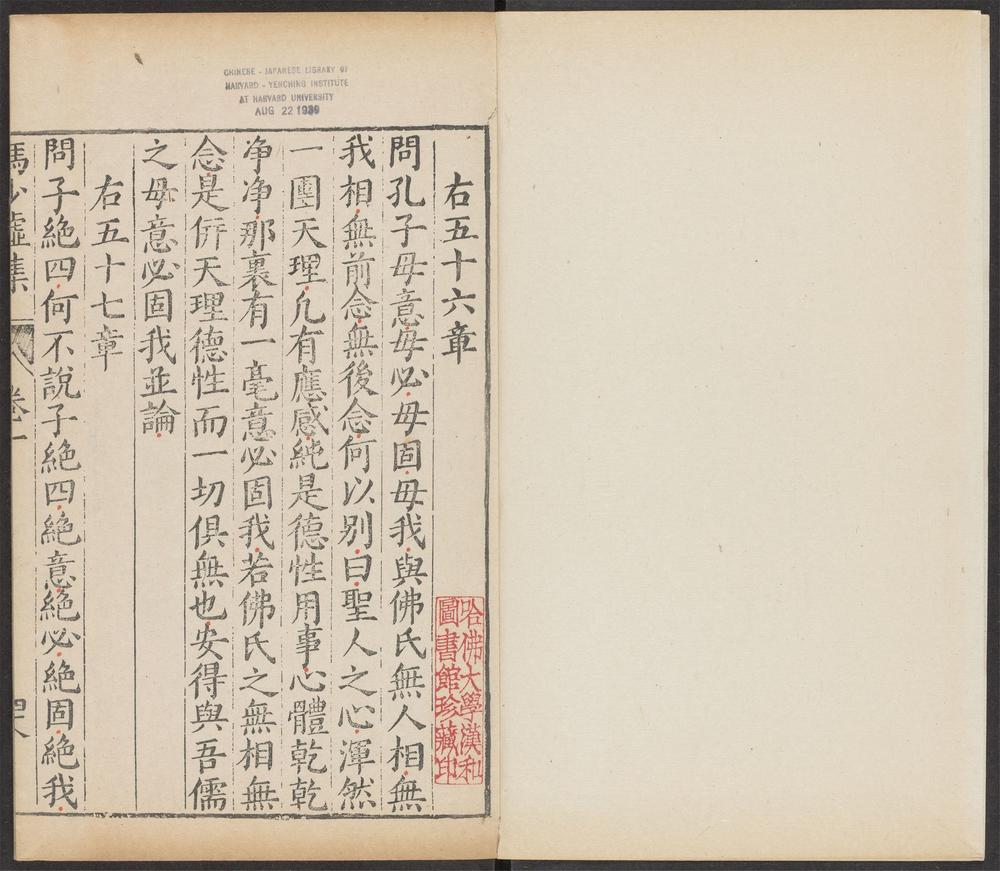 CHINESE - JAPANESE LIBRARY OF
HARVARD - YENCHING INSTITUTE
AT HARVARD UNIVERSITY
AUG 22 1939
右五十六章
哈佛大學漢和
圖書館珍藏印
問孔子毋意毋必毋固毋我與佛氏無人相無
我相無前念無後念何以别曰聖人之心渾然
一團天理凡有應感純是德性用事心體乾乾
净净那裏有一毫意必固我若佛氏之無相無
念是倂天理德性而一切俱無也安得與吾儒
之毋意必固我並論
右五十七章
問子絶四何不說子絶四絶意絶必絶固絶我
馮少墟集 卷一